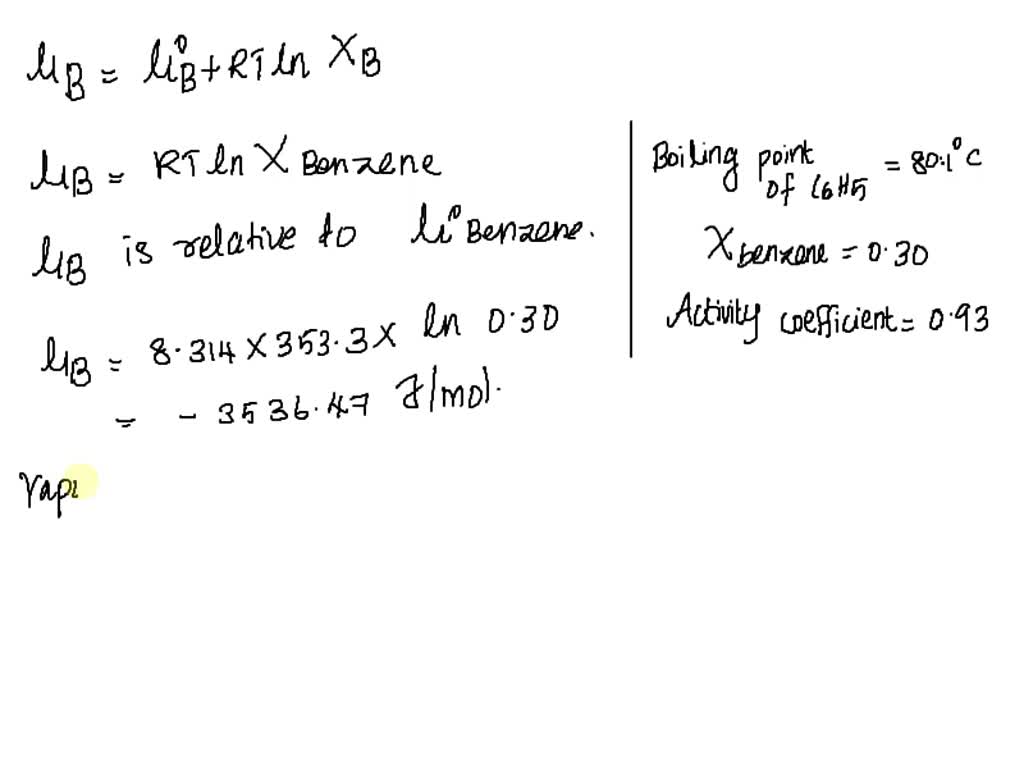 μB = μ°B + RT ln XB
μB = RT ln X Benzene
μB is relative to μ° Benzene.
μB = 8.314 × 353.3 × ln 0.30
= - 3536.47 J/mol.
Vap
Boiling point of C6H5 = 80.1°C
X benzene = 0.30
Activity coefficient = 0.93